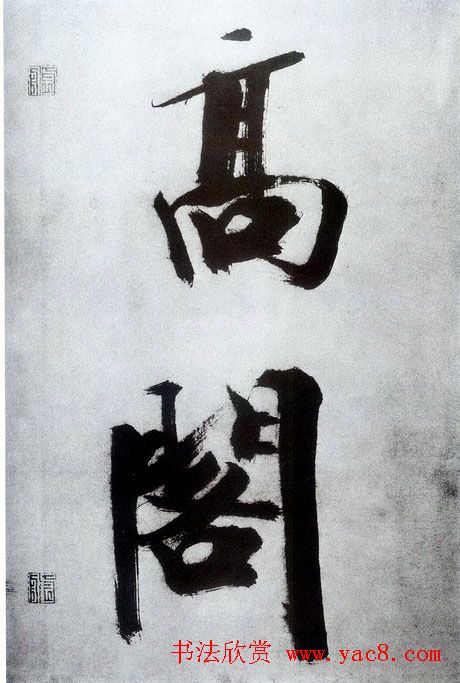 高
閣
书法欣赏 www.yac8.com